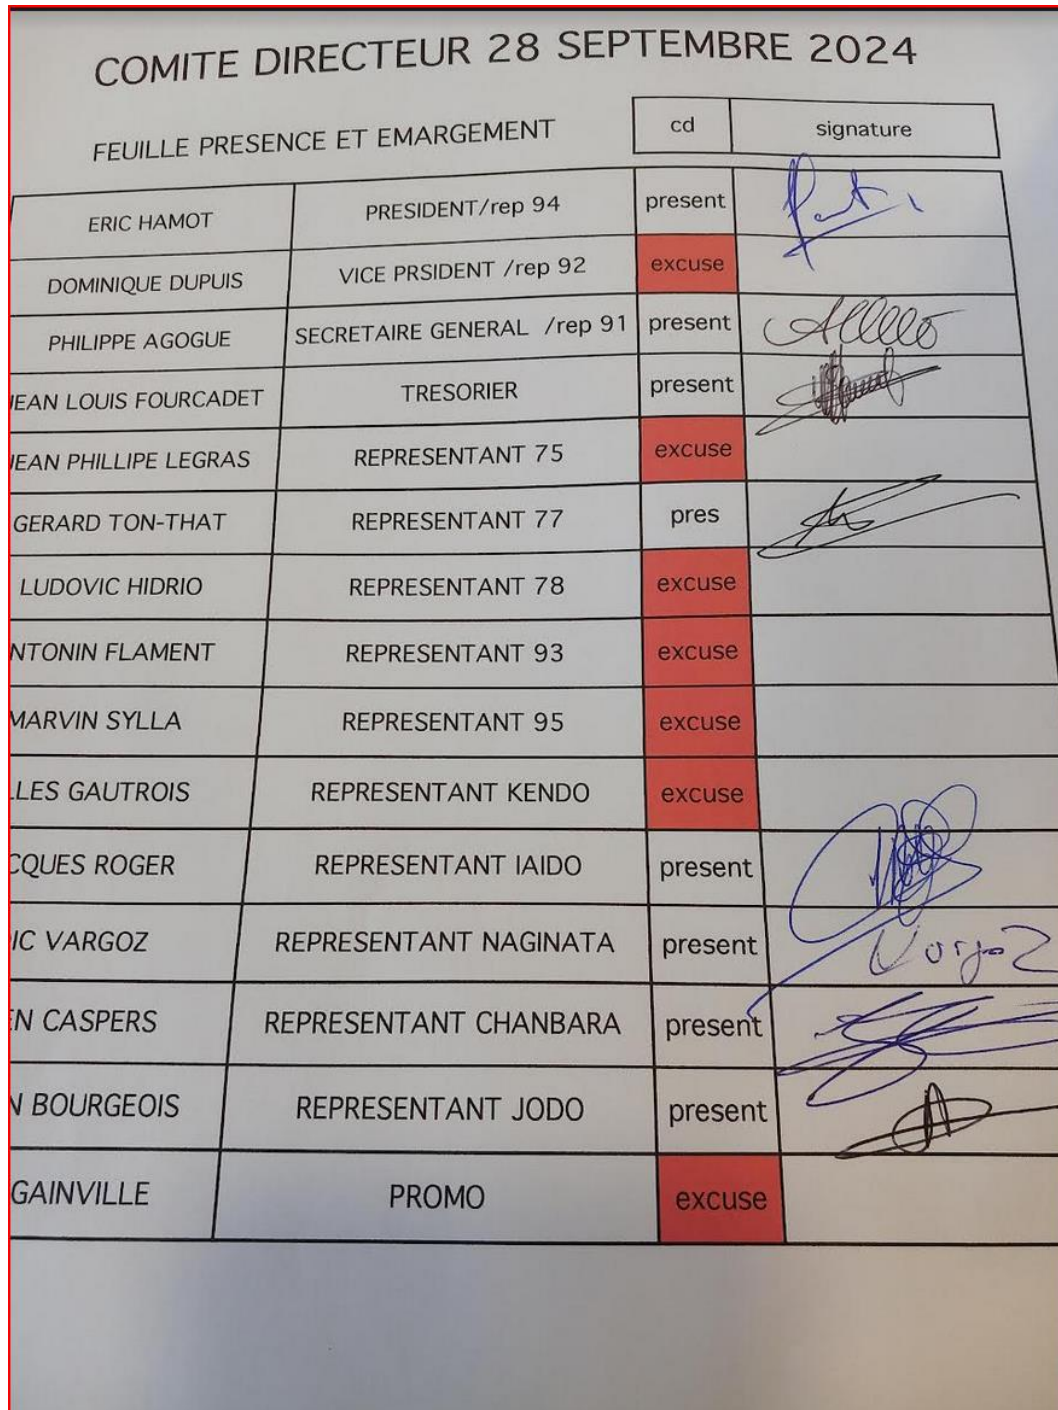 COMITE DIRECTEUR 28 SEPTEMBRE 2024
FEUILLE PRESENCE ET EMARGEMENT cd signature
ERIC HAMOT PRESIDENT/rep 94 present
DOMINIQUE DUPUIS VICE PRSIDENT /rep 92 excuse
PHILIPPE AGOGUE SECRETAIRE GENERAL /rep 91 present
JEAN LOUIS FOURCADET TRESORIER present
JEAN PHILLIPE LEGRAS REPRESENTANT 75 excuse
GERARD TON-THAT REPRESENTANT 77 pres
LUDOVIC HIDRIO REPRESENTANT 78 excuse
NTONIN FLAMENT REPRESENTANT 93 excuse
MARVIN SYLLA REPRESENTANT 95 excuse
LLES GAUTROIS REPRESENTANT KENDO excuse
CQUES ROGER REPRESENTANT IAIDO present
IC VARGOZ REPRESENTANT NAGINATA present VargoZ
EN CASPERS REPRESENTANT CHANBARA present
N BOURGEOIS REPRESENTANT JODO present
GAINVILLE PROMO excuse